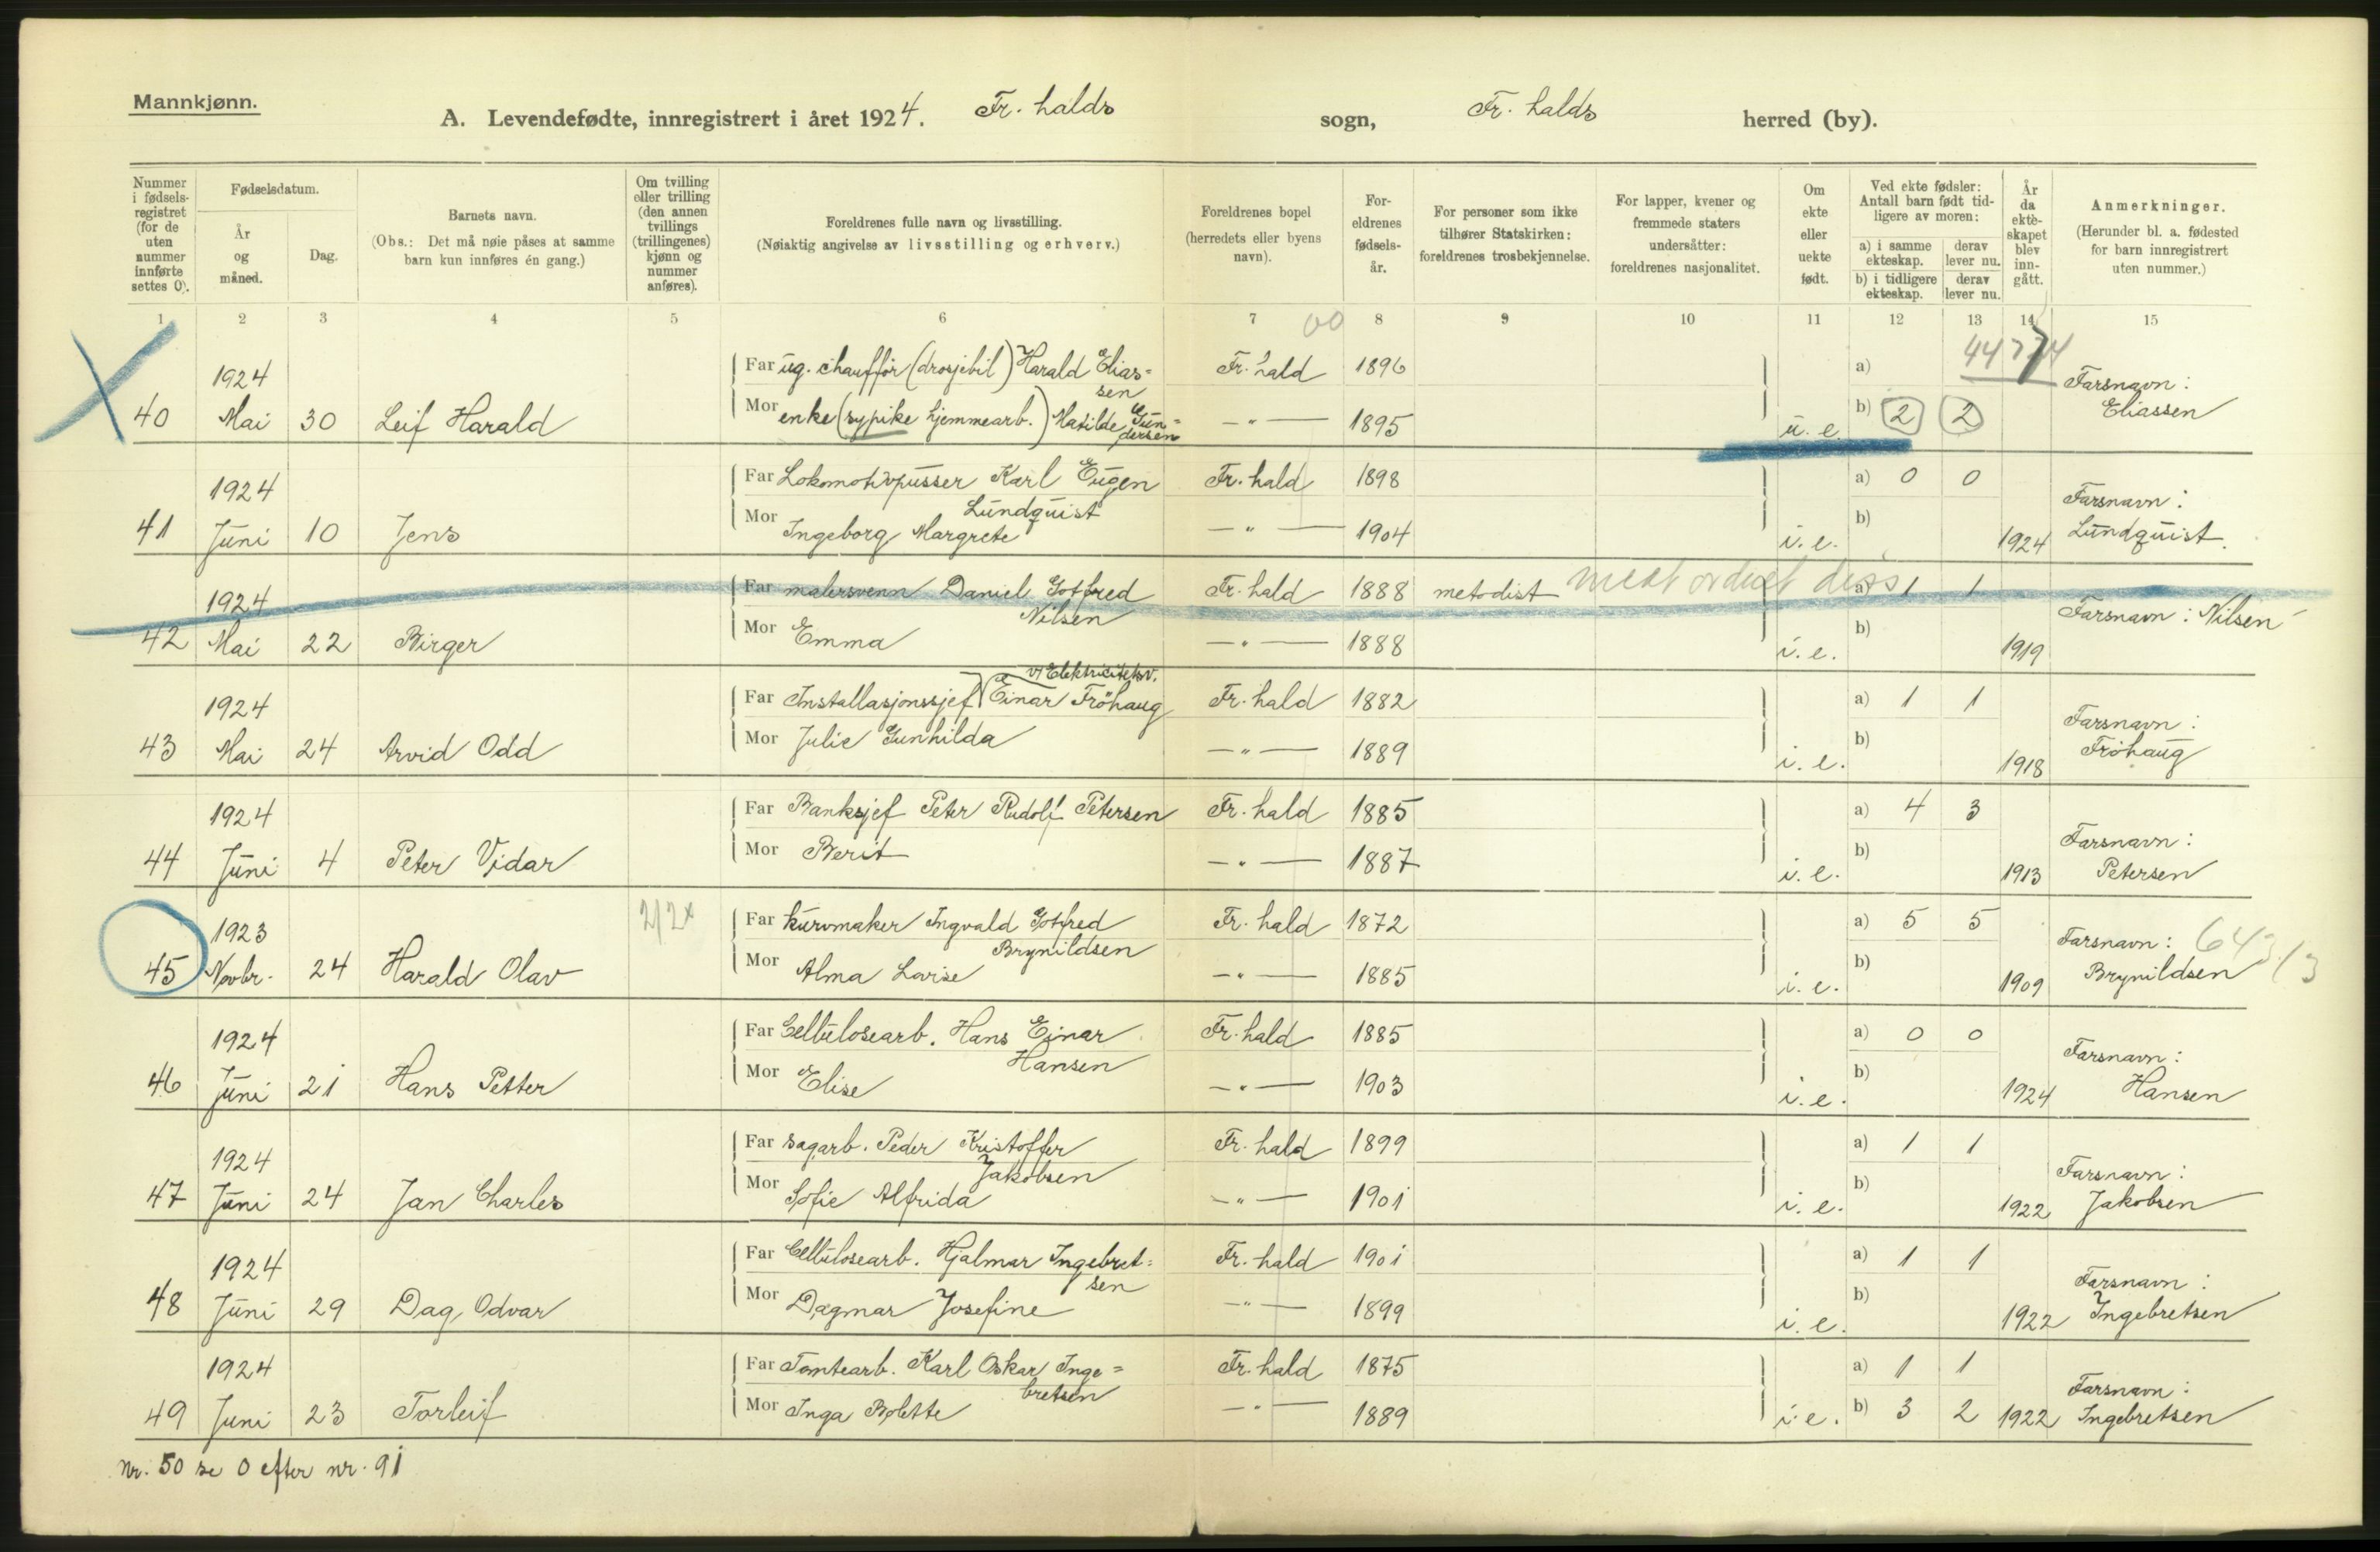 Mannkjønn.
A. Levendefødte, innregistrert i året 1924. Fr. halds sogn, Fr. halds herred (by).
Nummer i fødsels-registret (for de uten nummer innførte settes 0).
Fødselsdatum.
År og måned.
Dag.
Barnets navn.
(Obs.: Det må nøie påses at samme barn kun innføres én gang.)
Om tvilling eller trilling (den annen tvillings (trillingenes) kjønn og nummer anføres).
Foreldrenes fulle navn og livsstilling.
(Nøiaktig angivelse av livsstilling og erhverv.)
Foreldrenes bopel (herredets eller byens navn).
For-eldrenes fødsels-år.
For personer som ikke tilhører Statskirken: foreldrenes trosbekjennelse.
For lapper, kvener og fremmede staters undersåtter: foreldrenes nasjonalitet.
Om ekte eller uekte født.
Ved ekte fødsler: Antall barn født tid-ligere av moren:
a) i samme ekteskap. derav lever nu.
b) i tidligere ekteskap. derav lever nu.
År da ekte-skapet blev inn-gått.
Anmerkninger.
(Herunder bl. a. fødested for barn innregistrert uten nummer.)
1 2 3 4 5 6 7 8 9 10 11 12 13 14 15
1924 Far ug. chauffør (drosjebil) Harald Elias= Fr. hald 1896 a) Farsnavn:
sen
40 Mai 30 Leif Harald Mor enke (sypike hjemmearb.) Matilde Gun= —"— 1895 u. e. b) 2 2 Eliassen
dersen
1924 Far Lokomotivpusser Karl Eugen Fr. hald 1898 a) 0 0 Farsnavn:
Lundquist
41 Juni 10 Jens Mor Ingeborg Margrete —"— 1904 i. e. b) 1924 Lundquist.
1924 Far malersvenn Daniel Gotfred Fr. hald 1888 metodist a) 1 1 Farsnavn: Nilsen
Nilsen
42 Mai 22 Birger Mor Emma —"— 1888 i. e. b) 1919
v/Elektricitetsv.
1924 Far Installasjonssjef Einar Fröhaug Fr. hald 1882 a) 1 1 Farsnavn:
43 Mai 24 Arvid Odd Mor Julie Gunhilda —"— 1889 i. e. b) 1918 Fröhaug
1924 Far Banksjef Peter Rudolf Petersen Fr. hald 1885 a) 4 3 Farsnavn:
44 Juni 4 Peter Vidar Mor Berit —"— 1887 i. e. b) 1913 Petersen
1923 Far kurvmaker Ingvald Gotfred Fr. hald 1872 a) 5 5 Farsnavn:
Brynildsen
45 Novbr. 24 Harald Olav Mor Alma Lovise —"— 1885 i. e. b) 1909 Brynildsen
1924 Far Cellulosearb. Hans Einar Fr. hald 1885 a) 0 0 Farsnavn:
Hansen
46 Juni 21 Hans Petter Mor Elise —"— 1903 i. e. b) 1924 Hansen
1924 Far sagarb. Peder Kristoffer Fr. hald 1899 a) 1 1 Farsnavn:
Jakobsen
47 Juni 24 Jan Charles Mor Sofie Alfrida —"— 1901 i. e. b) 1922 Jakobsen
1924 Far Cellulosearb. Hjalmar Ingebret= Fr. hald 1901 a) 1 1 Farsnavn:
sen
48 Juni 29 Dag Odvar Mor Dagmar Josefine —"— 1899 i. e. b) 1922 Ingebretsen
1924 Far Tomtearb. Karl Oskar Inge= Fr. hald 1875 a) 1 1 Farsnavn:
bretsen
49 Juni 23 Torleif Mor Inga Bolette —"— 1889 i. e. b) 3 2 1922 Ingebretsen
Nr. 50 se 0 efter nr. 91